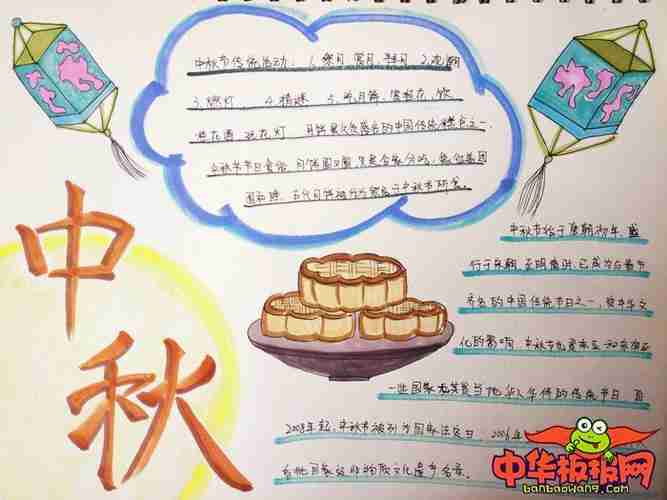 中秋节传统活动：1.祭月 赏月、拜月 2.观潮
3.燃灯、 4.猜谜 5.吃月饼、赏桂花、饮
桂花酒 玩花灯 月饼是久负盛名的中国传统糕点之一，
中秋节节日食俗 月饼圆又圆，又是合家分吃，象征着团
圆和睦
中秋
中秋节始于唐朝初年，盛
行于宋朝，至明清时，已成为与春节
齐名的中国传统节日之一，受中华文
化的影响，中秋节也是东亚和东南亚
一些国家尤其是当地华人华侨的传统节日，自
2008年起，中秋节被列为国家法定日，2006年
首批国家级非物质文化遗产名录。
中华板报网
banbaowang.com